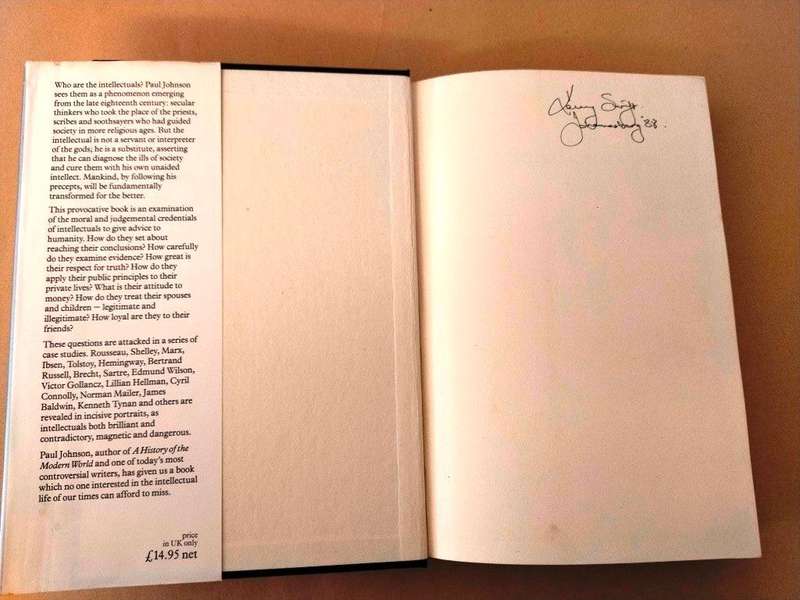 Who are the intellectuals? Paul Johnson
sees them as a phenomenon emerging
from the late eighteenth century: secular
thinkers who took the place of the priests,
scribes and soothsayers who had guided
society in more religious ages. But the
intellectual is not a servant or interpreter
of the gods; he is a substitute, asserting
that he can diagnose the ills of society
and cure them with his own unaided
intellect. Mankind, by following his
precepts, will be fundamentally
transformed for the better.
This provocative book is an examination
of the moral and judgemental credentials
of intellectuals to give advice to
humanity. How do they set about
reaching their conclusions? How carefully
do they examine evidence? How great is
their respect for truth? How do they
apply their public principles to their
private lives? What is their attitude to
money? How do they treat their spouses
and children — legitimate and
illegitimate? How loyal are they to their
friends?
These questions are attacked in a series of
case studies. Rousseau, Shelley, Marx,
Ibsen, Tolstoy, Hemingway, Bertrand
Russell, Brecht, Sartre, Edmund Wilson,
Victor Gollancz, Lillian Hellman, Cyril
Connolly, Norman Mailer, James
Baldwin, Kenneth Tynan and others are
revealed in incisive portraits, as
intellectuals both brilliant and
contradictory, magnetic and dangerous.
Paul Johnson, author of A History of the
Modern World and one of today's most
controversial writers, has given us a book
which no one interested in the intellectual
life of our times can afford to miss.
price
in UK only
£14.95 net
Johannesburg '88.